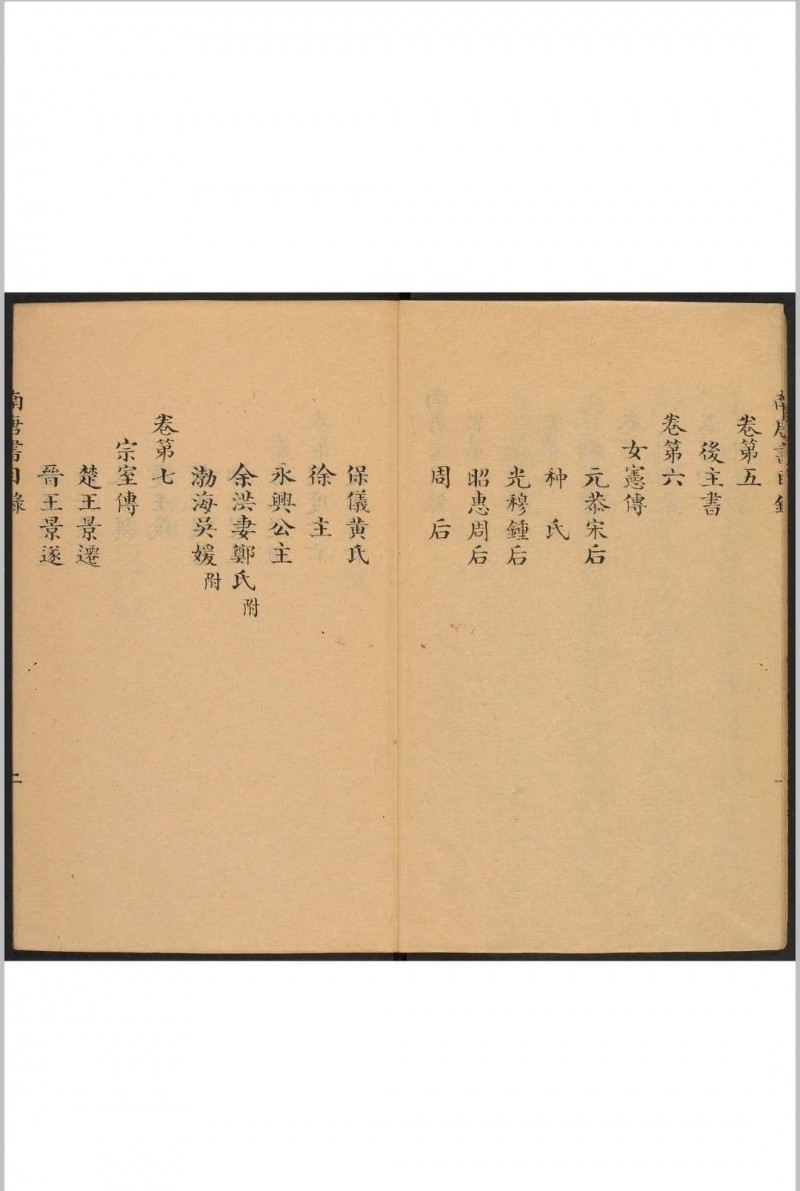 南唐書目錄
卷第五
後主書
卷第六
女憲傳
元恭宋后
种氏
光穆鍾后
昭惠周后
周后
一
保儀黄氏
徐主
永興公主
余洪妻鄭氏附
渤海吳媛附
卷第七
宗室傳
楚王景遷
晉王景遂
南唐書目錄
二